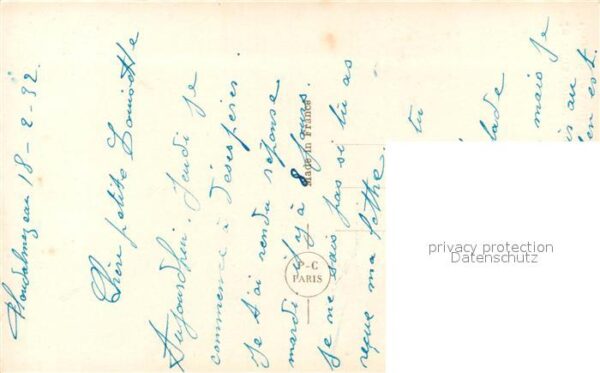 Ploudalmezeau 18-2-32.
Chère petite Louisette
Aujourdhui. Jeudi je
commence à desespérer
Je t'ai rendu réponse
mardi il y à 8 jours.
Je ne sais pas si tu as
reçue ma lettre.
tu
lade
mais je
en est
Made in France
-C
PARIS
privacy protection
Datenschutz